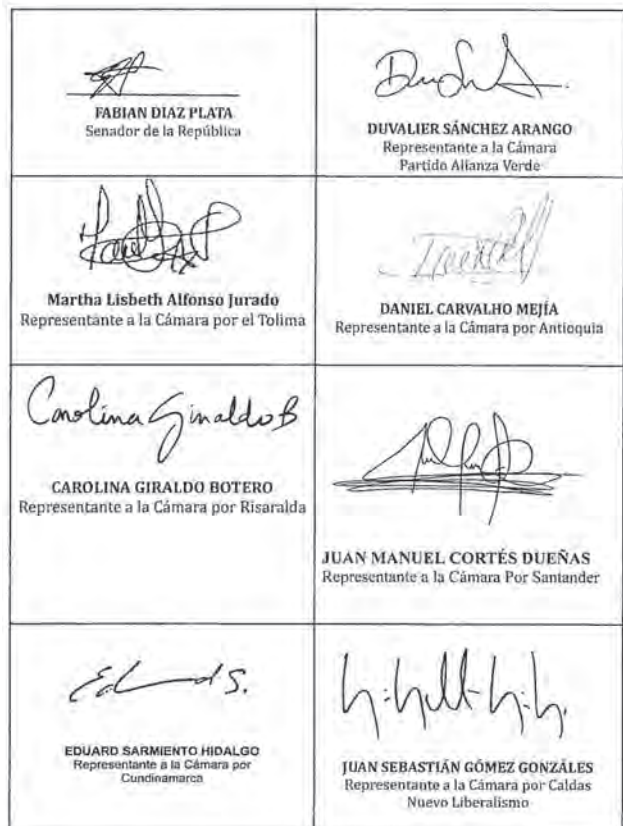 FABIAN DIAZ PLATA
Senador de la República
DUVALIER SÁNCHEZ ARANGO
Representante a la Cámara
Partido Alianza Verde
Martha Lisbeth Alfonso Jurado
Representante a la Cámara por el Tolima
DANIEL CARVALHO MEJÍA
Representante a la Cámara por Antioquia
Carolina Giraldo B
CAROLINA GIRALDO BOTERO
Representante a la Cámara por Risaralda
JUAN MANUEL CORTÉS DUEÑAS
Representante a la Cámara Por Santander
EDUARD SARMIENTO HIDALGO
Representante a la Cámara por
Cundinamarca
JUAN SEBASTIÁN GÓMEZ GONZÁLES
Representante a la Cámara por Caldas
Nuevo Liberalismo